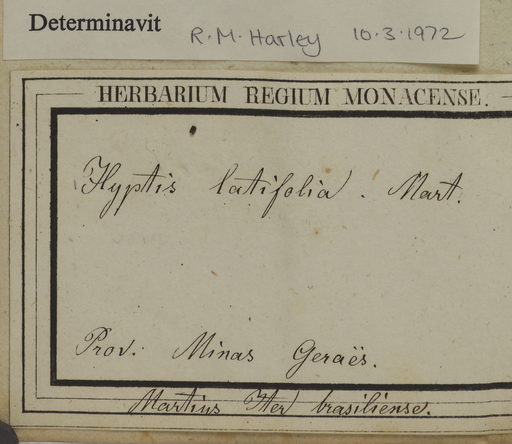 Determinavit R.M. Harley 10.3.1972
HERBARIUM REGIUM MONACENSE.
Hyptis latifolia. Mart.
Prov. Minas Geraës.
Martius Iter brasiliense.